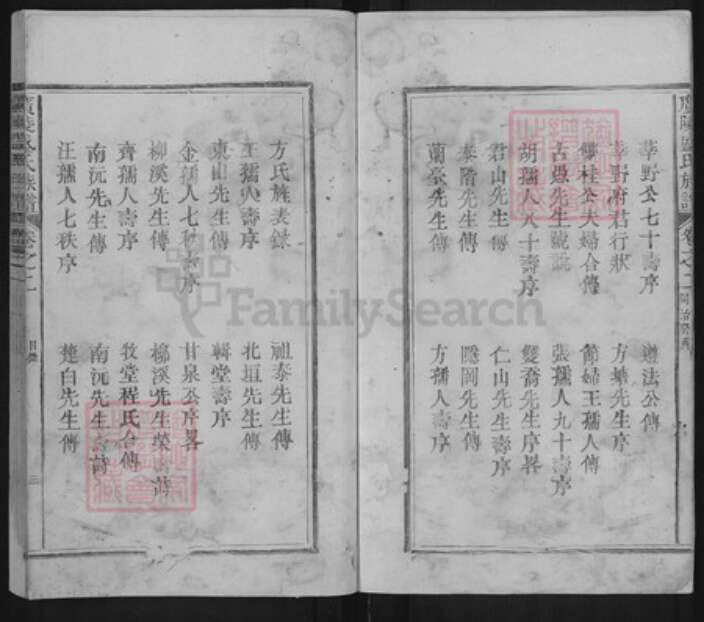 族譜 卷之二
莘野公七十壽序 遵法公傳
莘野府君行狀 方塘先生序
公夫婦合傳 節婦王孺人傳
古愚先生號說 張孺人九十壽序
胡孺人八十壽序 雙喬先生序畧
君山先生傳 仁山先生壽序
泰階先生傳 隱岡先生傳
蘭臺先生傳 方孺人壽序
方氏旌表錄 祖泰先生傳
王孺人壽序 北垣先生傳
東山先生傳 輯堂壽序
金孺人七秩壽序 甘泉丞序畧
柳溪先生傳 柳溪先生榮壽
齊孺人壽序 牧堂程氏合傳
南沅先生傳 南沅先生壽
汪孺人七秩序 楚白先生傳
族譜 卷之二 目錄 三
FamilySearch